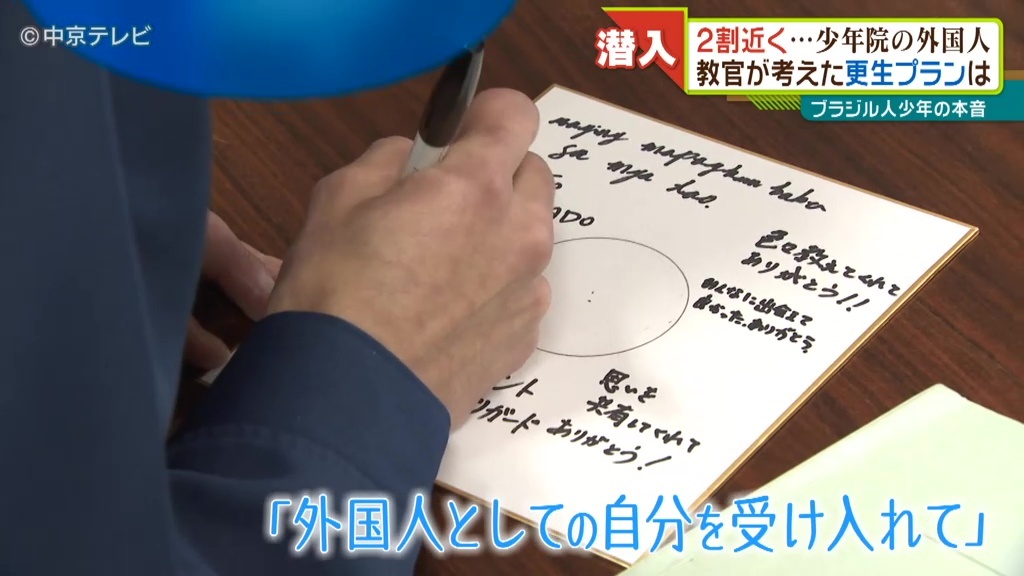 ©中京テレビ
潜入
2割近く…少年院の外国人
教官が考えた更生プランは
ブラジル人少年の本音
maging mapagkum baba
sa mga tao.
ADO
色々教えてくれて
ありがとう!!
みんなに出会えて
良かった。ありがとう。
思いを
共有してくれて
ありがとう!
ント
リガード ありがとう!
「外国人としての自分を受け入れて」